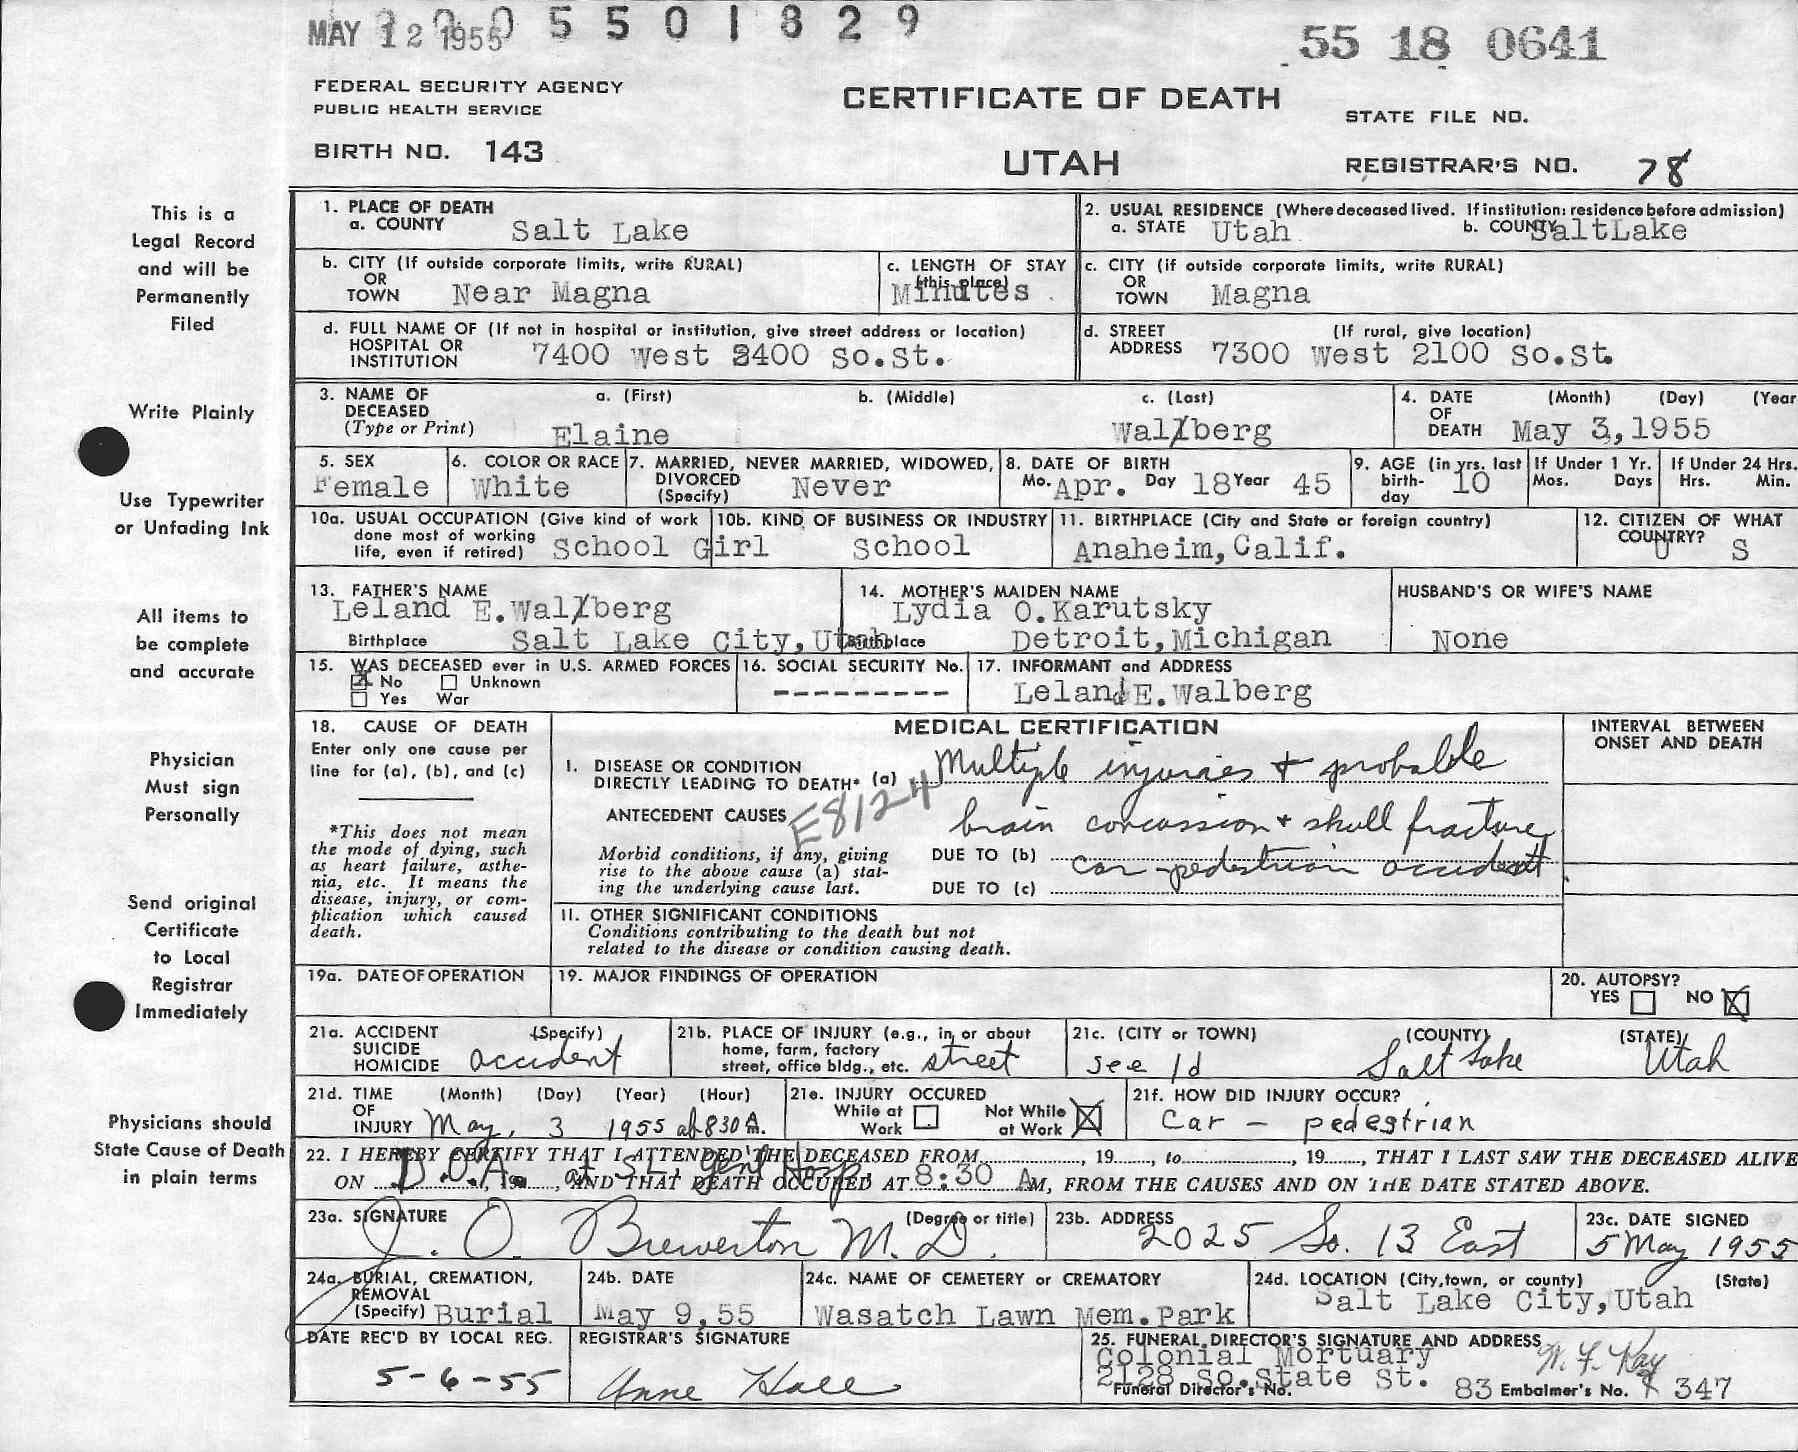 MAY 12 1955 5 5 0 1 8 2 9
55 18 0641
FEDERAL SECURITY AGENCY
PUBLIC HEALTH SERVICE
CERTIFICATE OF DEATH
STATE FILE NO.
BIRTH NO. 143
UTAH
REGISTRAR'S NO. 78
This is a
Legal Record
and will be
Permanently
Filed
Write Plainly
Use Typewriter
or Unfading Ink
All items to
be complete
and accurate
Physician
Must sign
Personally
Send original
Certificate
to Local
Registrar
Immediately
Physicians should
State Cause of Death
in plain terms
1. PLACE OF DEATH
a. COUNTY Salt Lake
2. USUAL RESIDENCE (Where deceased lived. If institution: residence before admission)
a. STATE Utah b. COUNTY SaltLake
b. CITY (If outside corporate limits, write RURAL)
OR
TOWN Near Magna
c. LENGTH OF STAY
(this place)
Minutes
c. CITY (if outside corporate limits, write RURAL)
OR
TOWN Magna
d. FULL NAME OF (If not in hospital or institution, give street address or location)
HOSPITAL OR
INSTITUTION 7400 West 2400 So.St.
d. STREET (If rural, give location)
ADDRESS 7300 West 2100 So.St.
3. NAME OF
DECEASED
(Type or Print)
a. (First) b. (Middle) c. (Last)
Elaine Wallberg
4. DATE (Month) (Day) (Year
OF
DEATH May 3,1955
5. SEX
Female
6. COLOR OR RACE
White
7. MARRIED, NEVER MARRIED, WIDOWED,
DIVORCED
(Specify) Never
8. DATE OF BIRTH
Mo. Apr. Day 18 Year 45
9. AGE (in yrs. last
birth-
day 10
If Under 1 Yr.
Mos. Days
If Under 24 Hrs.
Hrs. Min.
10a. USUAL OCCUPATION (Give kind of work
done most of working
life, even if retired) School Girl
10b. KIND OF BUSINESS OR INDUSTRY
School
11. BIRTHPLACE (City and State or foreign country)
Anaheim,Calif.
12. CITIZEN OF WHAT
COUNTRY?
U S
13. FATHER'S NAME
Leland E.Wallberg
Birthplace Salt Lake City,Utah
14. MOTHER'S MAIDEN NAME
Lydia O.Karutsky
Birthplace Detroit,Michigan
HUSBAND'S OR WIFE'S NAME
None
15. WAS DECEASED ever in U.S. ARMED FORCES
X No Unknown
Yes War
16. SOCIAL SECURITY No.
---------
17. INFORMANT and ADDRESS
Leland E.Walberg
18. CAUSE OF DEATH
Enter only one cause per
line for (a), (b), and (c)
*This does not mean
the mode of dying, such
as heart failure, asthe-
nia, etc. It means the
disease, injury, or com-
plication which caused
death.
MEDICAL CERTIFICATION
INTERVAL BETWEEN
ONSET AND DEATH
I. DISEASE OR CONDITION
DIRECTLY LEADING TO DEATH* (a) Multiple injuries + probable
E8124
ANTECEDENT CAUSES brain concussion + skull fracture
Morbid conditions, if any, giving
rise to the above cause (a) stat-
ing the underlying cause last.
DUE TO (b) car-pedestrian accident
DUE TO (c)
II. OTHER SIGNIFICANT CONDITIONS
Conditions contributing to the death but not
related to the disease or condition causing death.
19a. DATE OF OPERATION
19. MAJOR FINDINGS OF OPERATION
20. AUTOPSY?
YES NO X
21a. ACCIDENT (Specify)
SUICIDE
HOMICIDE accident
21b. PLACE OF INJURY (e.g., in or about
home, farm, factory
street, office bldg., etc. street
21c. (CITY or TOWN) (COUNTY) (STATE)
see 1d Salt Lake Utah
21d. TIME (Month) (Day) (Year) (Hour)
OF
INJURY May, 3 1955 at 830 A.M.
21e. INJURY OCCURED
While at
Work
Not While
at Work X
21f. HOW DID INJURY OCCUR?
Car - pedestrian
22. I HEREBY CERTIFY THAT I ATTENDED THE DECEASED FROM, 19, to, 19, THAT I LAST SAW THE DECEASED ALIVE
D.O.A. at S.L. Gen'l Hosp.
ON, 19, AND THAT DEATH OCCURED AT 8:30 AM, FROM THE CAUSES AND ON THE DATE STATED ABOVE.
23a. SIGNATURE (Degree or title)
J. O. Brewerton M.D.
23b. ADDRESS
2025 So. 13 East
23c. DATE SIGNED
5 May 1955
24a. BURIAL, CREMATION,
REMOVAL
(Specify) Burial
24b. DATE
May 9,55
24c. NAME OF CEMETERY or CREMATORY
Wasatch Lawn Mem.Park
24d. LOCATION (City,town, or county) (State)
Salt Lake City,Utah
DATE REC'D BY LOCAL REG.
5-6-55
REGISTRAR'S SIGNATURE
Anne Hall
25. FUNERAL DIRECTOR'S SIGNATURE AND ADDRESS
Colonial Mortuary W. F. Kay
2128 So.State St.
Funeral Director's No. 83 Embalmer's No. 347